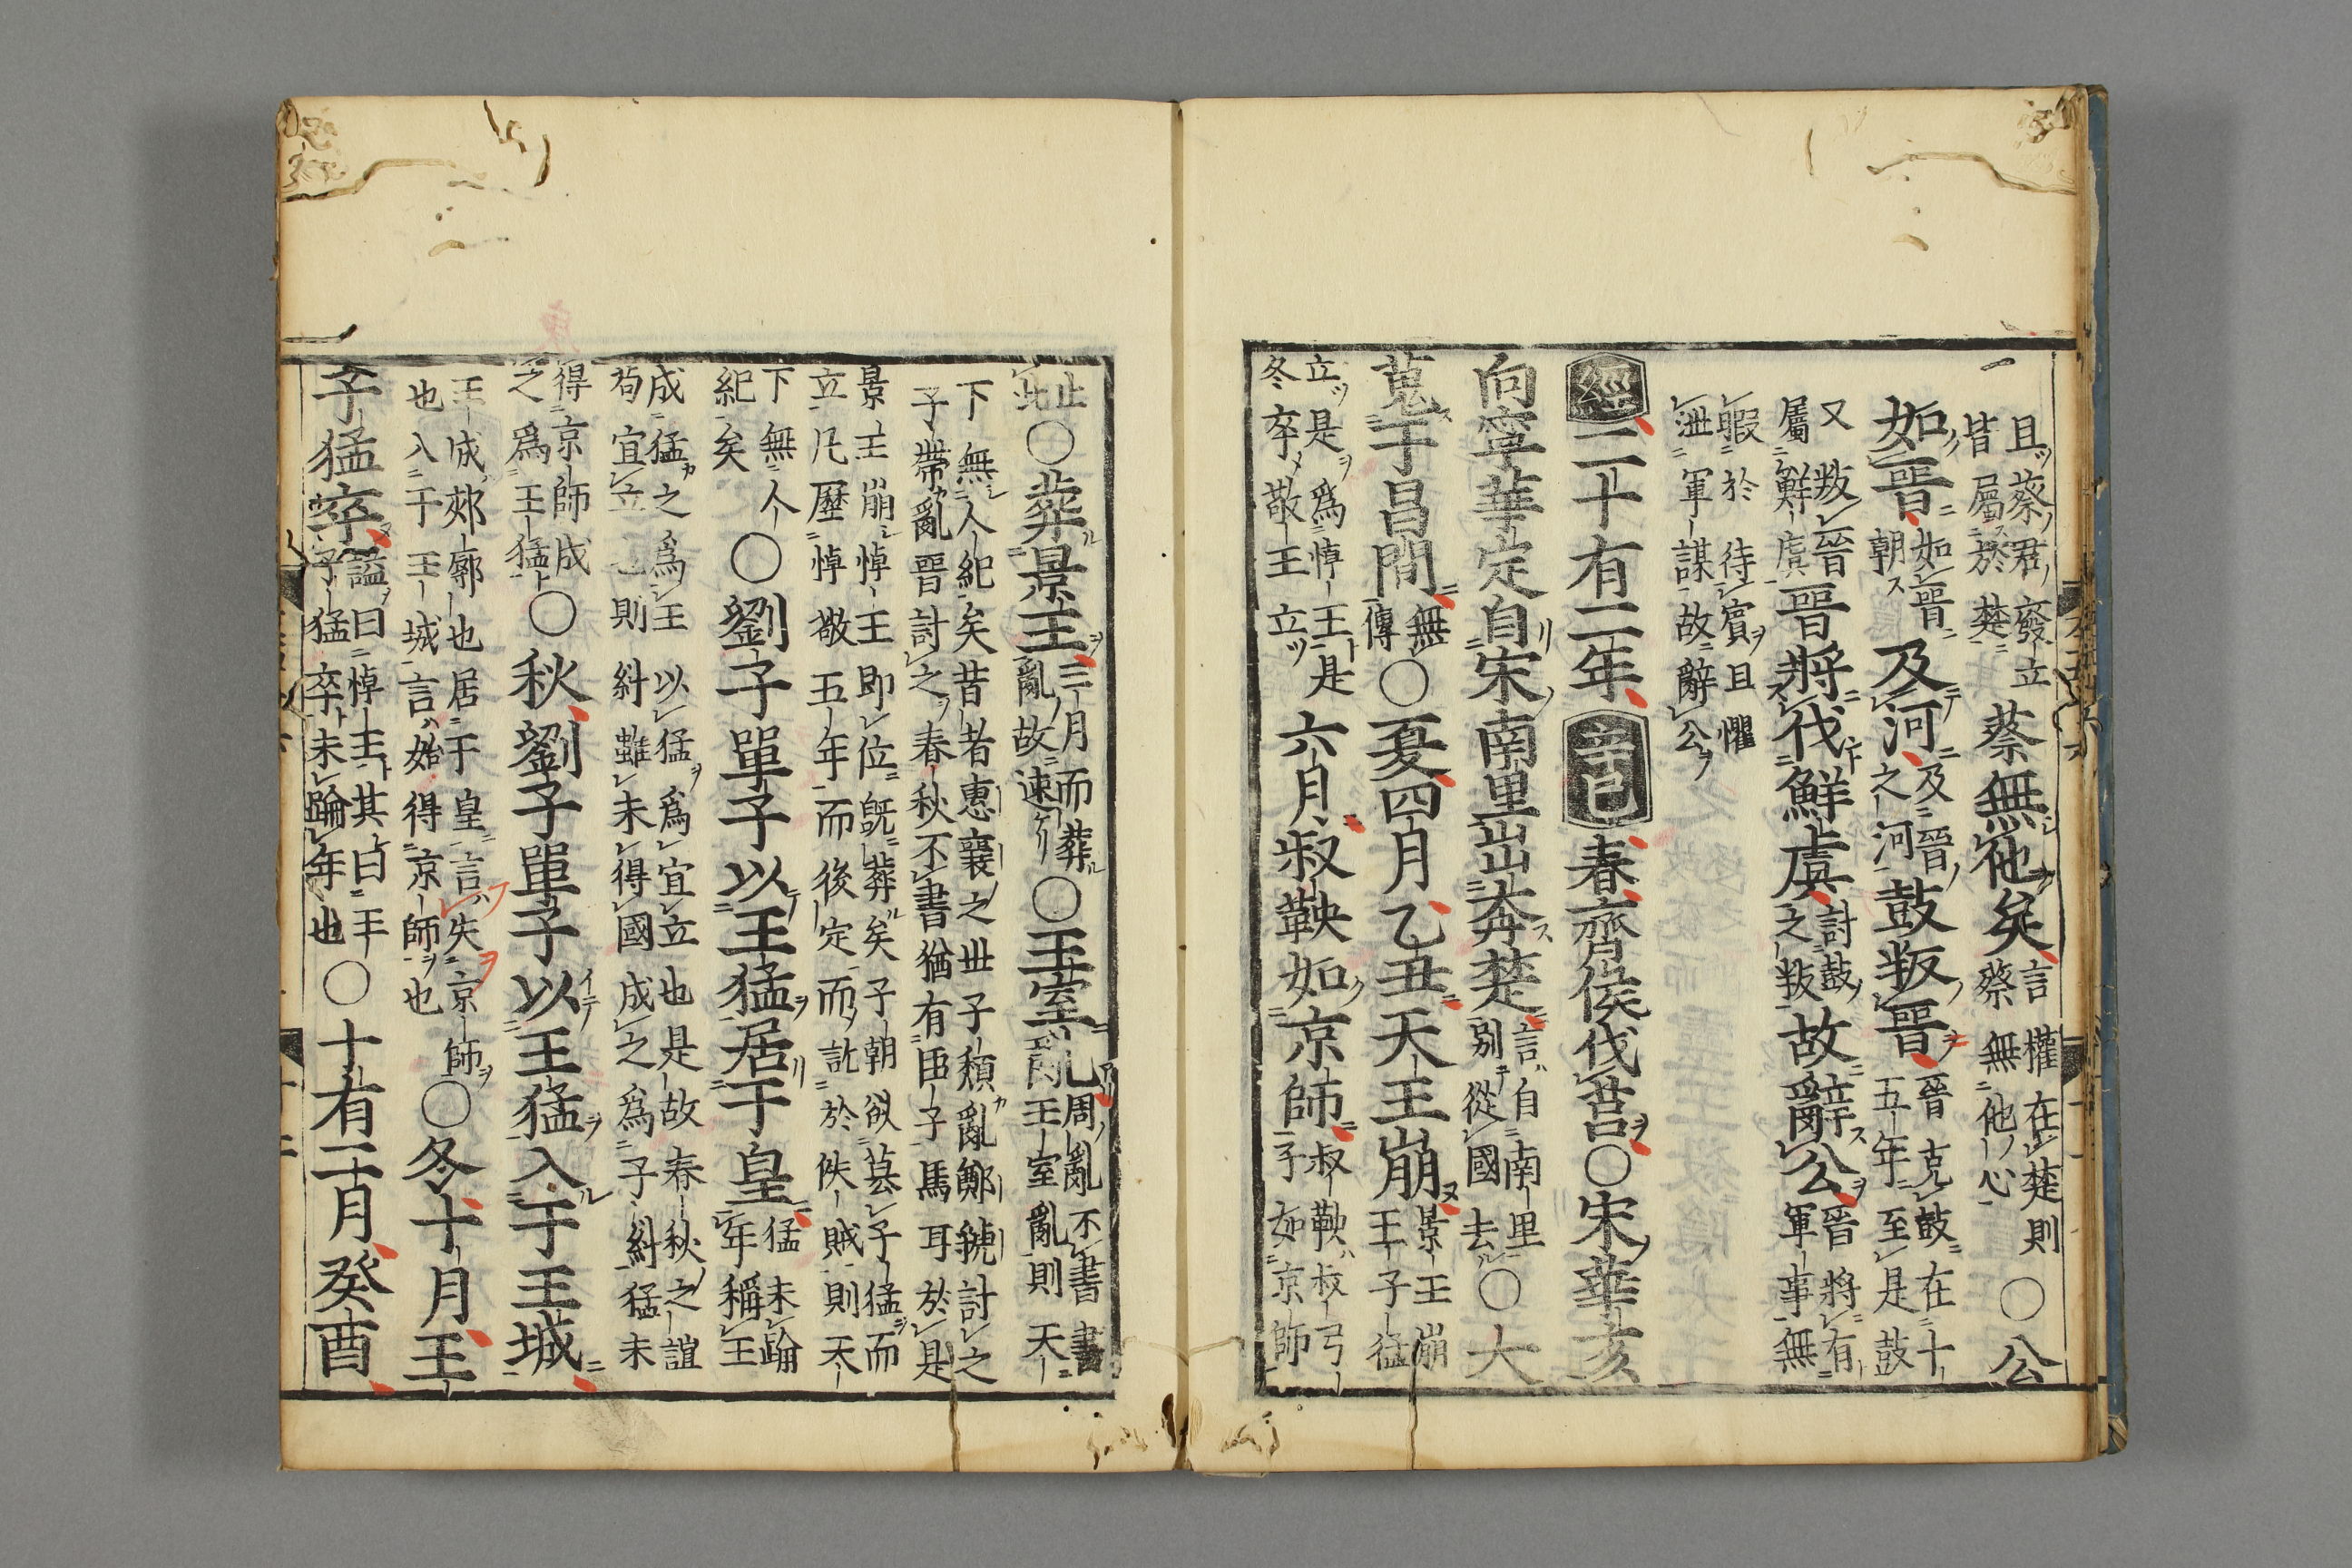 且蔡君廢立
皆屬於楚
蔡無他矣
言權在楚則
蔡無他心
〇公
如晉
如晉
朝
及河
及晉
之河
鼓叛晉
晉克鼓在十
五年至是鼓
又叛晉
屬鮮虞
晉將伐鮮虞
討鼓
之叛
故辭公
晉將有
軍事無
暇於待賓且懼
泄軍謀故辭公
經二十有二年辛巳春齊侯伐莒〇宋華亥
向寧華定自宋南里出奔楚
言自南里
別從國去
〇大
蒐于昌間
無
傳
〇夏四月乙丑天王崩
景王崩
王子猛
立是爲悼王是
冬卒敬王立
六月叔鞅如京師
叔鞅叔弓
子如京師
止
此
〇葬景王
三月而葬
亂故速
〇王室亂
周亂不書書
王室亂則天
下無人紀矣昔者惠襄之世子頹亂鄭虢討之
子帶亂晉討之春秋不書猶有臣子焉耳於是
景王崩悼王即位旣葬矣子朝欲篡子猛而
立凡歷悼敬五年而後定而訖於佚賊則天
下無人
紀矣
〇劉子單子以王猛居于皇
猛未踰
年稱王
成猛之爲王以猛爲宜立也是故春秋之誼
苟宜立則糾雖未得國成之爲子糾猛未
得京師成
之爲王猛
〇秋劉子單子以王猛入于王城
王成郟郭也居于皇言失京師
也入于王城言始得京師也
〇冬十月王
子猛卒
謚曰悼王其曰王
子猛卒未踰年也
〇十有二月癸酉